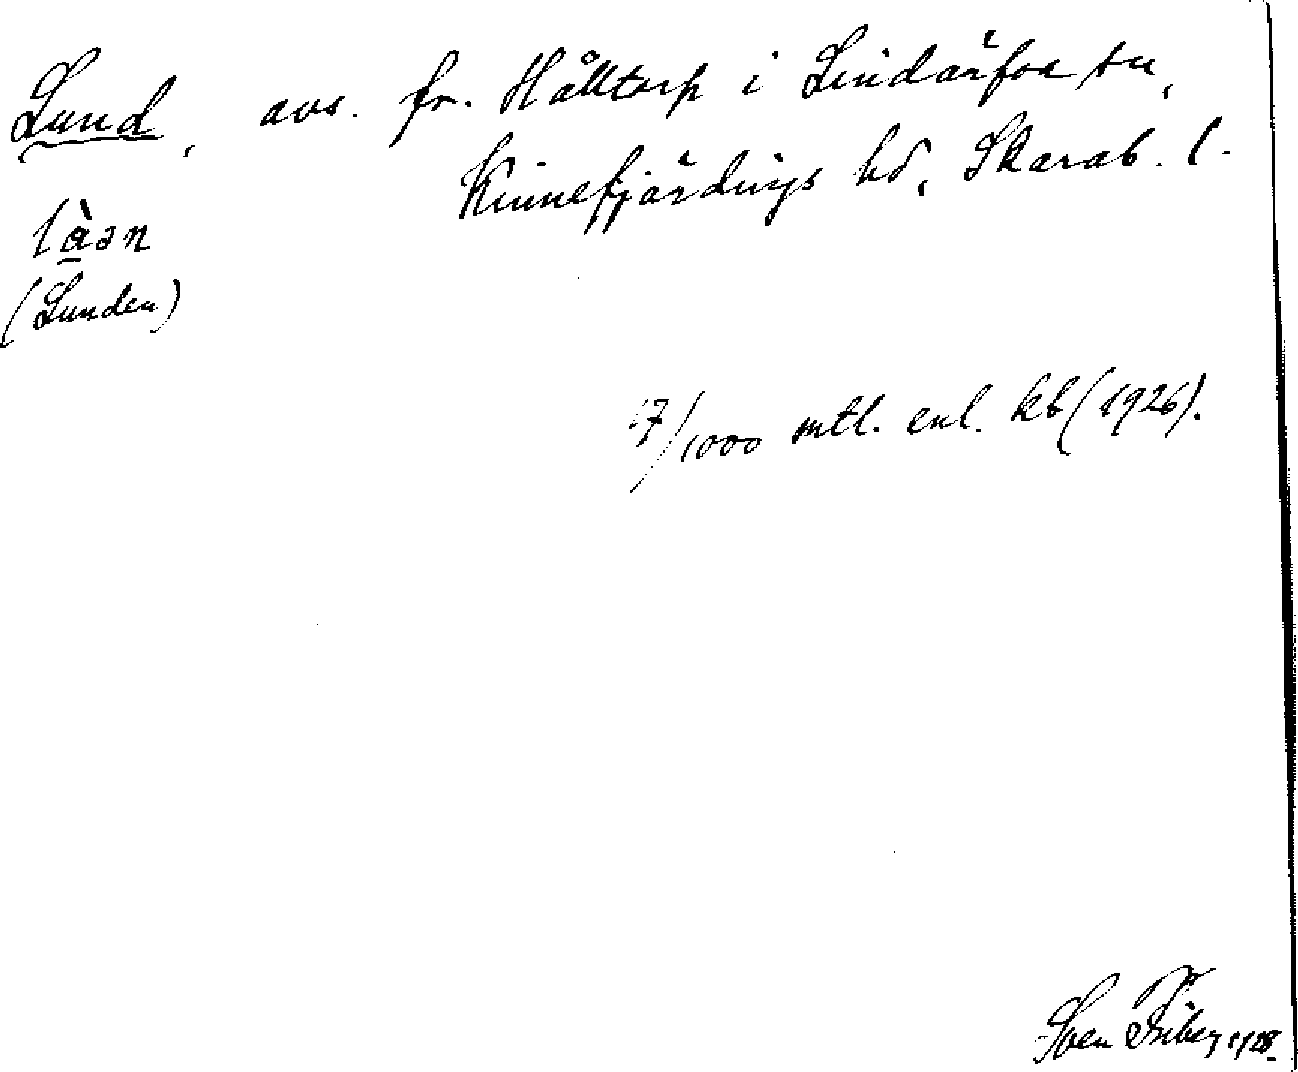 Lund, avs. fr. Hålltorp i Lindärfva sn,
Kinnefjärdings hd, Skarab. l.
làan
(Lunden)
17/1000 mtl. enl. kb (1926).
Sven Friberg 1928